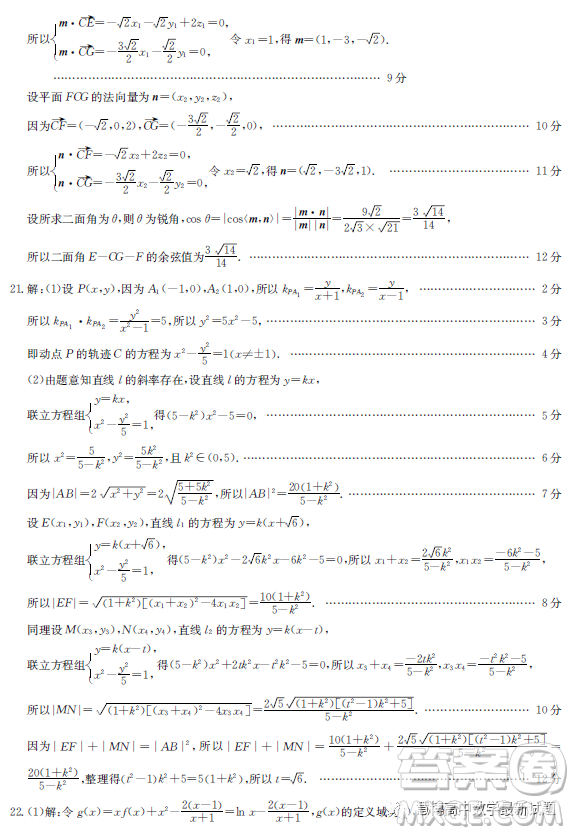 所以{m·CE=-√2x₁-√2y₁+2z₁=0, m·CG=-(3√2/2)x₁-(√2/2)y₁=0, 令x₁=1,得m=(1,-3,-√2).
…… 9分
设平面FCG的法向量为n=(x₂,y₂,z₂),
因为CF=(-√2,0,2),CG=(-3√2/2,-√2/2,0), …… 10分
所以{n·CF=-√2x₂+2z₂=0, n·CG=-(3√2/2)x₂-(√2/2)y₂=0, 令x₂=√2,得n=(√2,-3√2,1). …… 11分
设所求二面角为θ,则θ为锐角,cos θ=|cos⟨m,n⟩|=|m·n|/(|m||n|)=9√2/(2√3×√21)=3√14/14,
所以二面角E-CG-F的余弦值为3√14/14. …… 12分
21.解:(1)设P(x,y),因为A₁(-1,0),A₂(1,0),所以k_PA₁=y/(x+1),k_PA₂=y/(x-1), …… 2分
所以k_PA₁·k_PA₂=y²/(x²-1)=5,所以y²=5x²-5, …… 3分
即动点P的轨迹C的方程为x²-y²/5=1(x≠±1). …… 4分
(2)由题意知直线l的斜率存在,设直线l的方程为y=kx,
联立方程组{y=kx, x²-y²/5=1, 得(5-k²)x²-5=0, …… 5分
所以x²=5/(5-k²),y²=5k²/(5-k²),且k²∈(0,5). …… 6分
因为|AB|=2√(x²+y²)=2√((5+5k²)/(5-k²)),所以|AB|²=20(1+k²)/(5-k²). …… 7分
设E(x₁,y₁),F(x₂,y₂),直线l₁的方程为y=k(x+√6),
联立方程组{y=k(x+√6), x²-y²/5=1, 得(5-k²)x²-2√6k²x-6k²-5=0,所以x₁+x₂=2√6k²/(5-k²),x₁x₂=(-6k²-5)/(5-k²),
所以|EF|=√((1+k²)[(x₁+x₂)²-4x₁x₂])=10(1+k²)/(5-k²). …… 8分
同理设M(x₃,y₃),N(x₄,y₄),直线l₂的方程为y=k(x-t),
联立方程组{y=k(x-t), x²-y²/5=1, 得(5-k²)x²+2tk²x-t²k²-5=0,所以x₃+x₄=-2tk²/(5-k²),x₃x₄=(-t²k²-5)/(5-k²),
所以|MN|=√((1+k²)[(x₃+x₄)²-4x₃x₄])=2√5√((1+k²)[(t²-1)k²+5])/(5-k²). …… 10分
因为|EF|+|MN|=|AB|²,所以|EF|+|MN|=10(1+k²)/(5-k²)+2√5√((1+k²)[(t²-1)k²+5])/(5-k²)=
20(1+k²)/(5-k²),整理得(t²-1)k²+5=5(1+k²),所以t=√6. …… 12分
22.(1)解:令g(x)=xf(x)+x²-2(x-1)/(x+1)=ln x-2(x-1)/(x+1),g(x)的定义域